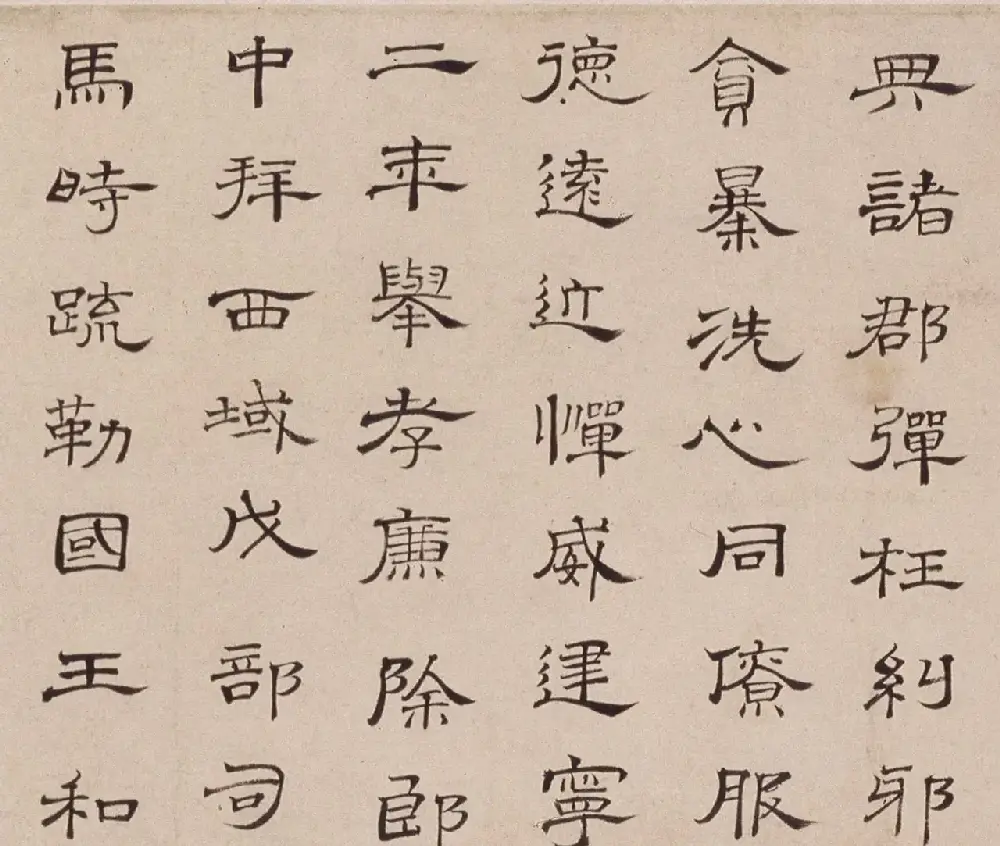 典諸郡彈枉糾邪
貪暴洗心同僚服
德遠近憚威建寧
二年舉孝廉除郎
中拜西域戊部司
馬時疏勒國王和